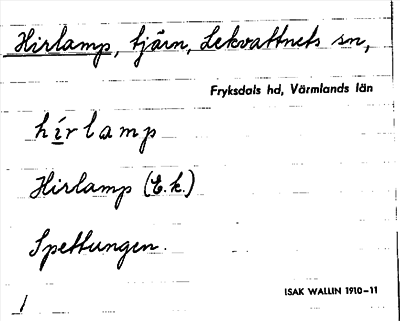 Hirlamp, tjärn, Lekvattnets sn,
Fryksdals hd, Värmlands län
hírlamp
Hirlamp (E.k.)
Spettungen.
ISAK WALLIN 1910-11
/